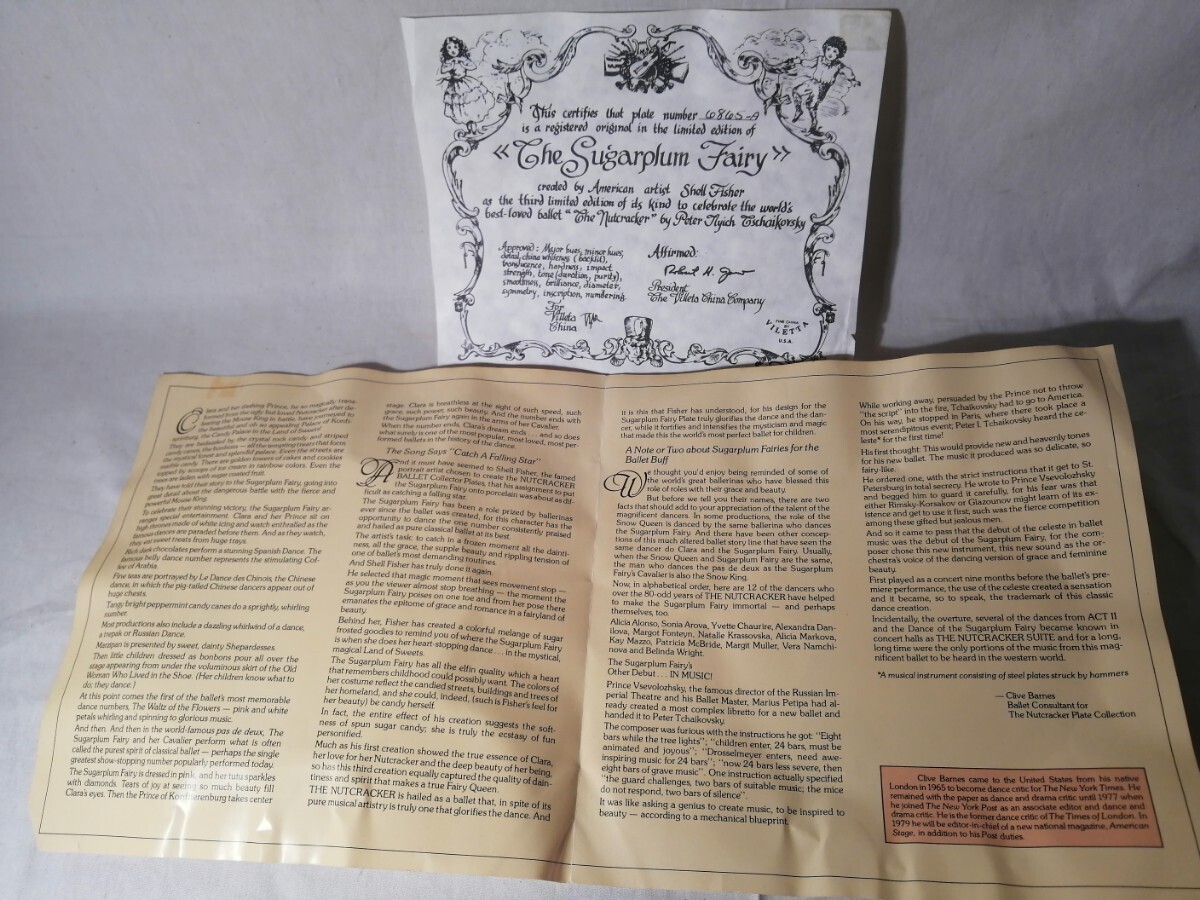 This certifies that plate number 6865-A
is a registered original in the limited edition of
"The Sugarplum Fairy"
created by American artist Shell Fisher
as the third limited edition of its kind to celebrate the world's
best-loved ballet "The Nutcracker" by Peter Ilyich Tschaikovsky
Approved: Major hues, minor hues,
detail, china whiteness (backlit),
translucence, hardness, impact
strength, tone (duration, purity),
smoothness, brilliance, diameter,
symmetry, inscription, numbering.
For
Viletta
China
Affirmed:
President
The Viletta China Company
FINE CHINA
BY
VILETTA
U.S.A.
Clara and her dashing Prince, he so magically trans-
formed from the ugly but loved Nutcracker after de-
feating the Mouse King in battle, have journeyed to
the beautiful and oh so appealing Palace of Konfi-
turenburg, the Candy Palace in the Land of Sweets!
They are bedazzled by the crystal rock candy and striped
candy canes, the bonbons — all the tempting treats that form
the mystical forest and splendid palace. Even the streets are
marble candy. There are golden towers of cakes and cookies
topped by scoops of ice cream in rainbow colors. Even the
trees are laden with sugar-coated fruit.
They have told their story to the Sugarplum Fairy, going into
great detail about the dangerous battle with the fierce and
powerful Mouse King.
To celebrate their stunning victory, the Sugarplum Fairy ar-
ranges special entertainment. Clara and her Prince sit on
high thrones made of white icing and watch enthralled as the
famous dances are paraded before them. And as they watch,
they eat sweet treats from huge trays.
Rich dark chocolates perform a stunning Spanish Dance. The
famous belly dance number represents the stimulating Cof-
fee of Arabia.
Fine teas are portrayed by Le Dance des Chinois, the Chinese
dance, in which the pig-tailed Chinese dancers appear out of
huge chests.
Tangy bright peppermint candy canes do a sprightly, whirling
number.
Most productions also include a dazzling whirlwind of a dance,
a trepak or Russian Dance.
Marzipan is presented by sweet, dainty Shepardesses.
Then little children dressed as bonbons pour all over the
stage appearing from under the voluminous skirt of the Old
Woman Who Lived in the Shoe. (Her children know what to
do; they dance.)
At this point comes the first of the ballet's most memorable
dance numbers, The Waltz of the Flowers — pink and white
petals whirling and spinning to glorious music.
And then. And then in the world-famous pas de deux, The
Sugarplum Fairy and her Cavalier perform what is often
called the purest spirit of classical ballet — perhaps the single
greatest show-stopping number popularly performed today.
The Sugarplum Fairy is dressed in pink, and her tutu sparkles
with diamonds. Tears of joy at seeing so much beauty fill
Clara's eyes. Then the Prince of Konfiturenburg takes center
stage. Clara is breathless at the sight of such speed, such
grace, such power, such beauty. And the number ends with
the Sugarplum Fairy again in the arms of her Cavalier.
When the number ends, Clara's dream ends . . . and so does
what surely is one of the most popular, most loved, most per-
formed ballets in the history of the dance.
The Song Says "Catch A Falling Star"
And it must have seemed to Shell Fisher, the famed
portrait artist chosen to create the NUTCRACKER
BALLET Collector Plates, that his assignment to put
the Sugarplum Fairy onto porcelain was about as dif-
ficult as catching a falling star.
The Sugarplum Fairy has been a role prized by ballerinas
ever since the ballet was created, for this character has the
opportunity to dance the one number consistently praised
and hailed as pure classical ballet at its best.
The artist's task: to catch in a frozen moment all the dainti-
ness, all the grace, the supple beauty and rippling tension of
one of ballet's most demanding routines.
And Shell Fisher has truly done it again.
He selected that magic moment that sees movement stop —
as you the viewer almost stop breathing — the moment the
Sugarplum Fairy poises on one toe and from her pose there
emanates the epitome of grace and romance in a fairyland of
beauty.
Behind her, Fisher has created a colorful melange of sugar
frosted goodies to remind you of where the Sugarplum Fairy
is when she does her heart-stopping dance . . . in the mystical,
magical Land of Sweets.
The Sugarplum Fairy has all the elfin quality which a heart
that remembers childhood could possibly want. The colors of
her costume reflect the candied streets, buildings and trees of
her homeland, and she could, indeed, (such is Fisher's feel for
her beauty) be candy herself.
In fact, the entire effect of his creation suggests the soft-
ness of spun sugar candy; she is truly the ecstasy of fun
personified.
Much as his first creation showed the true essence of Clara,
her love for her Nutcracker and the deep beauty of her being,
so has this third creation equally captured the quality of dain-
tiness and spirit that makes a true Fairy Queen.
THE NUTCRACKER is hailed as a ballet that, in spite of its
pure musical artistry is truly one that glorifies the dance. And
it is this that Fisher has understood, for his design for the
Sugarplum Fairy Plate truly glorifies the dance and the dan-
cer, while it fortifies and intensifies the mysticism and magic
that made this the world's most perfect ballet for children.
A Note or Two about Sugarplum Fairies for the
Ballet Buff
We thought you'd enjoy being reminded of some of
the world's great ballerinas who have blessed this
role of roles with their grace and beauty.
But before we tell you their names, there are two
facts that should add to your appreciation of the talent of the
magnificent dancers. In some productions, the role of the
Snow Queen is danced by the same ballerina who dances
the Sugarplum Fairy. And there have been other concep-
tions of this much altered ballet story line that have seen the
same dancer do Clara and the Sugarplum Fairy. Usually,
when the Snow Queen and Sugarplum Fairy are the same,
the man who dances the pas de deux as the Sugarplum
Fairy's Cavalier is also the Snow King.
Now, in alphabetical order, here are 12 of the dancers who
over the 80-odd years of THE NUTCRACKER have helped
to make the Sugarplum Fairy immortal — and perhaps
themselves, too.
Alicia Alonso, Sonia Arova, Yvette Chaurire, Alexandra Dan-
ilova, Margot Fonteyn, Natalie Krassovska, Alicia Markova,
Kay Mazzo, Patricia McBride, Margit Muller, Vera Namchi-
nova and Belinda Wright.
The Sugarplum Fairy's
Other Debut . . . IN MUSIC!
Prince Vsevolozhsky, the famous director of the Russian Im-
perial Theatre and his Ballet Master, Marius Petipa had al-
ready created a most complex libretto for a new ballet and
handed it to Peter Tchaikovsky.
The composer was furious with the instructions he got: "Eight
bars while the tree lights"; "children enter, 24 bars, must be
animated and joyous"; "Drosselmeyer enters, need awe-
inspiring music for 24 bars"; "now 24 bars less severe, then
eight bars of grave music". One instruction actually specified
"the guard challenges, two bars of suitable music; the mice
do not respond, two bars of silence".
It was like asking a genius to create music, to be inspired to
beauty — according to a mechanical blueprint.
While working, persuaded by the Prince not to throw
"the script" into the fire, Tchaikovsky had to go to America.
On his way, he stopped in Paris, where there took place a
most serendipitous event; Peter I. Tchaikovsky heard the ce-
leste* for the first time!
His first thought: This would provide new and heavenly tones
for his new ballet. The music it produced was so delicate, so
fairy-like.
He ordered one, with the strict instructions that it get to St.
Petersburg in total secrecy. He wrote to Prince Vsevolozhsky
and begged him to guard it carefully, for his fear was that
either Rimsky-Korsakov or Glazounov might learn of its ex-
istence and get to use it first; such was the fierce competition
among these gifted but jealous men.
And so it came to pass that the debut of the celeste in ballet
music was the debut of the Sugarplum Fairy, for the com-
poser chose this new instrument, this new sound as the or-
chestra's voice of the dancing version of grace and feminine
beauty.
First played as a concert nine months before the ballet's pre-
miere performance, the use of the celeste created a sensation
and it became, so to speak, the trademark of this classic
dance creation.
Incidentally, the overture, several of the dances from ACT II
and the Dance of the Sugarplum Fairy became known in
concert halls as THE NUTCRACKER SUITE and for a long,
long time were the only portions of the music from this mag-
nificent ballet to be heard in the western world.
*A musical instrument consisting of steel plates struck by hammers
— Clive Barnes
Ballet Consultant for
The Nutcracker Plate Collection
Clive Barnes came to the United States from his native
London in 1965 to become dance critic for The New York Times. He
remained with the paper as dance and drama critic until 1977 when
he joined The New York Post as an associate editor and dance and
drama critic. He is the former dance critic of The Times of London. In
1979 he will be editor-in-chief of a new national magazine, American
Stage, in addition to his Post duties.